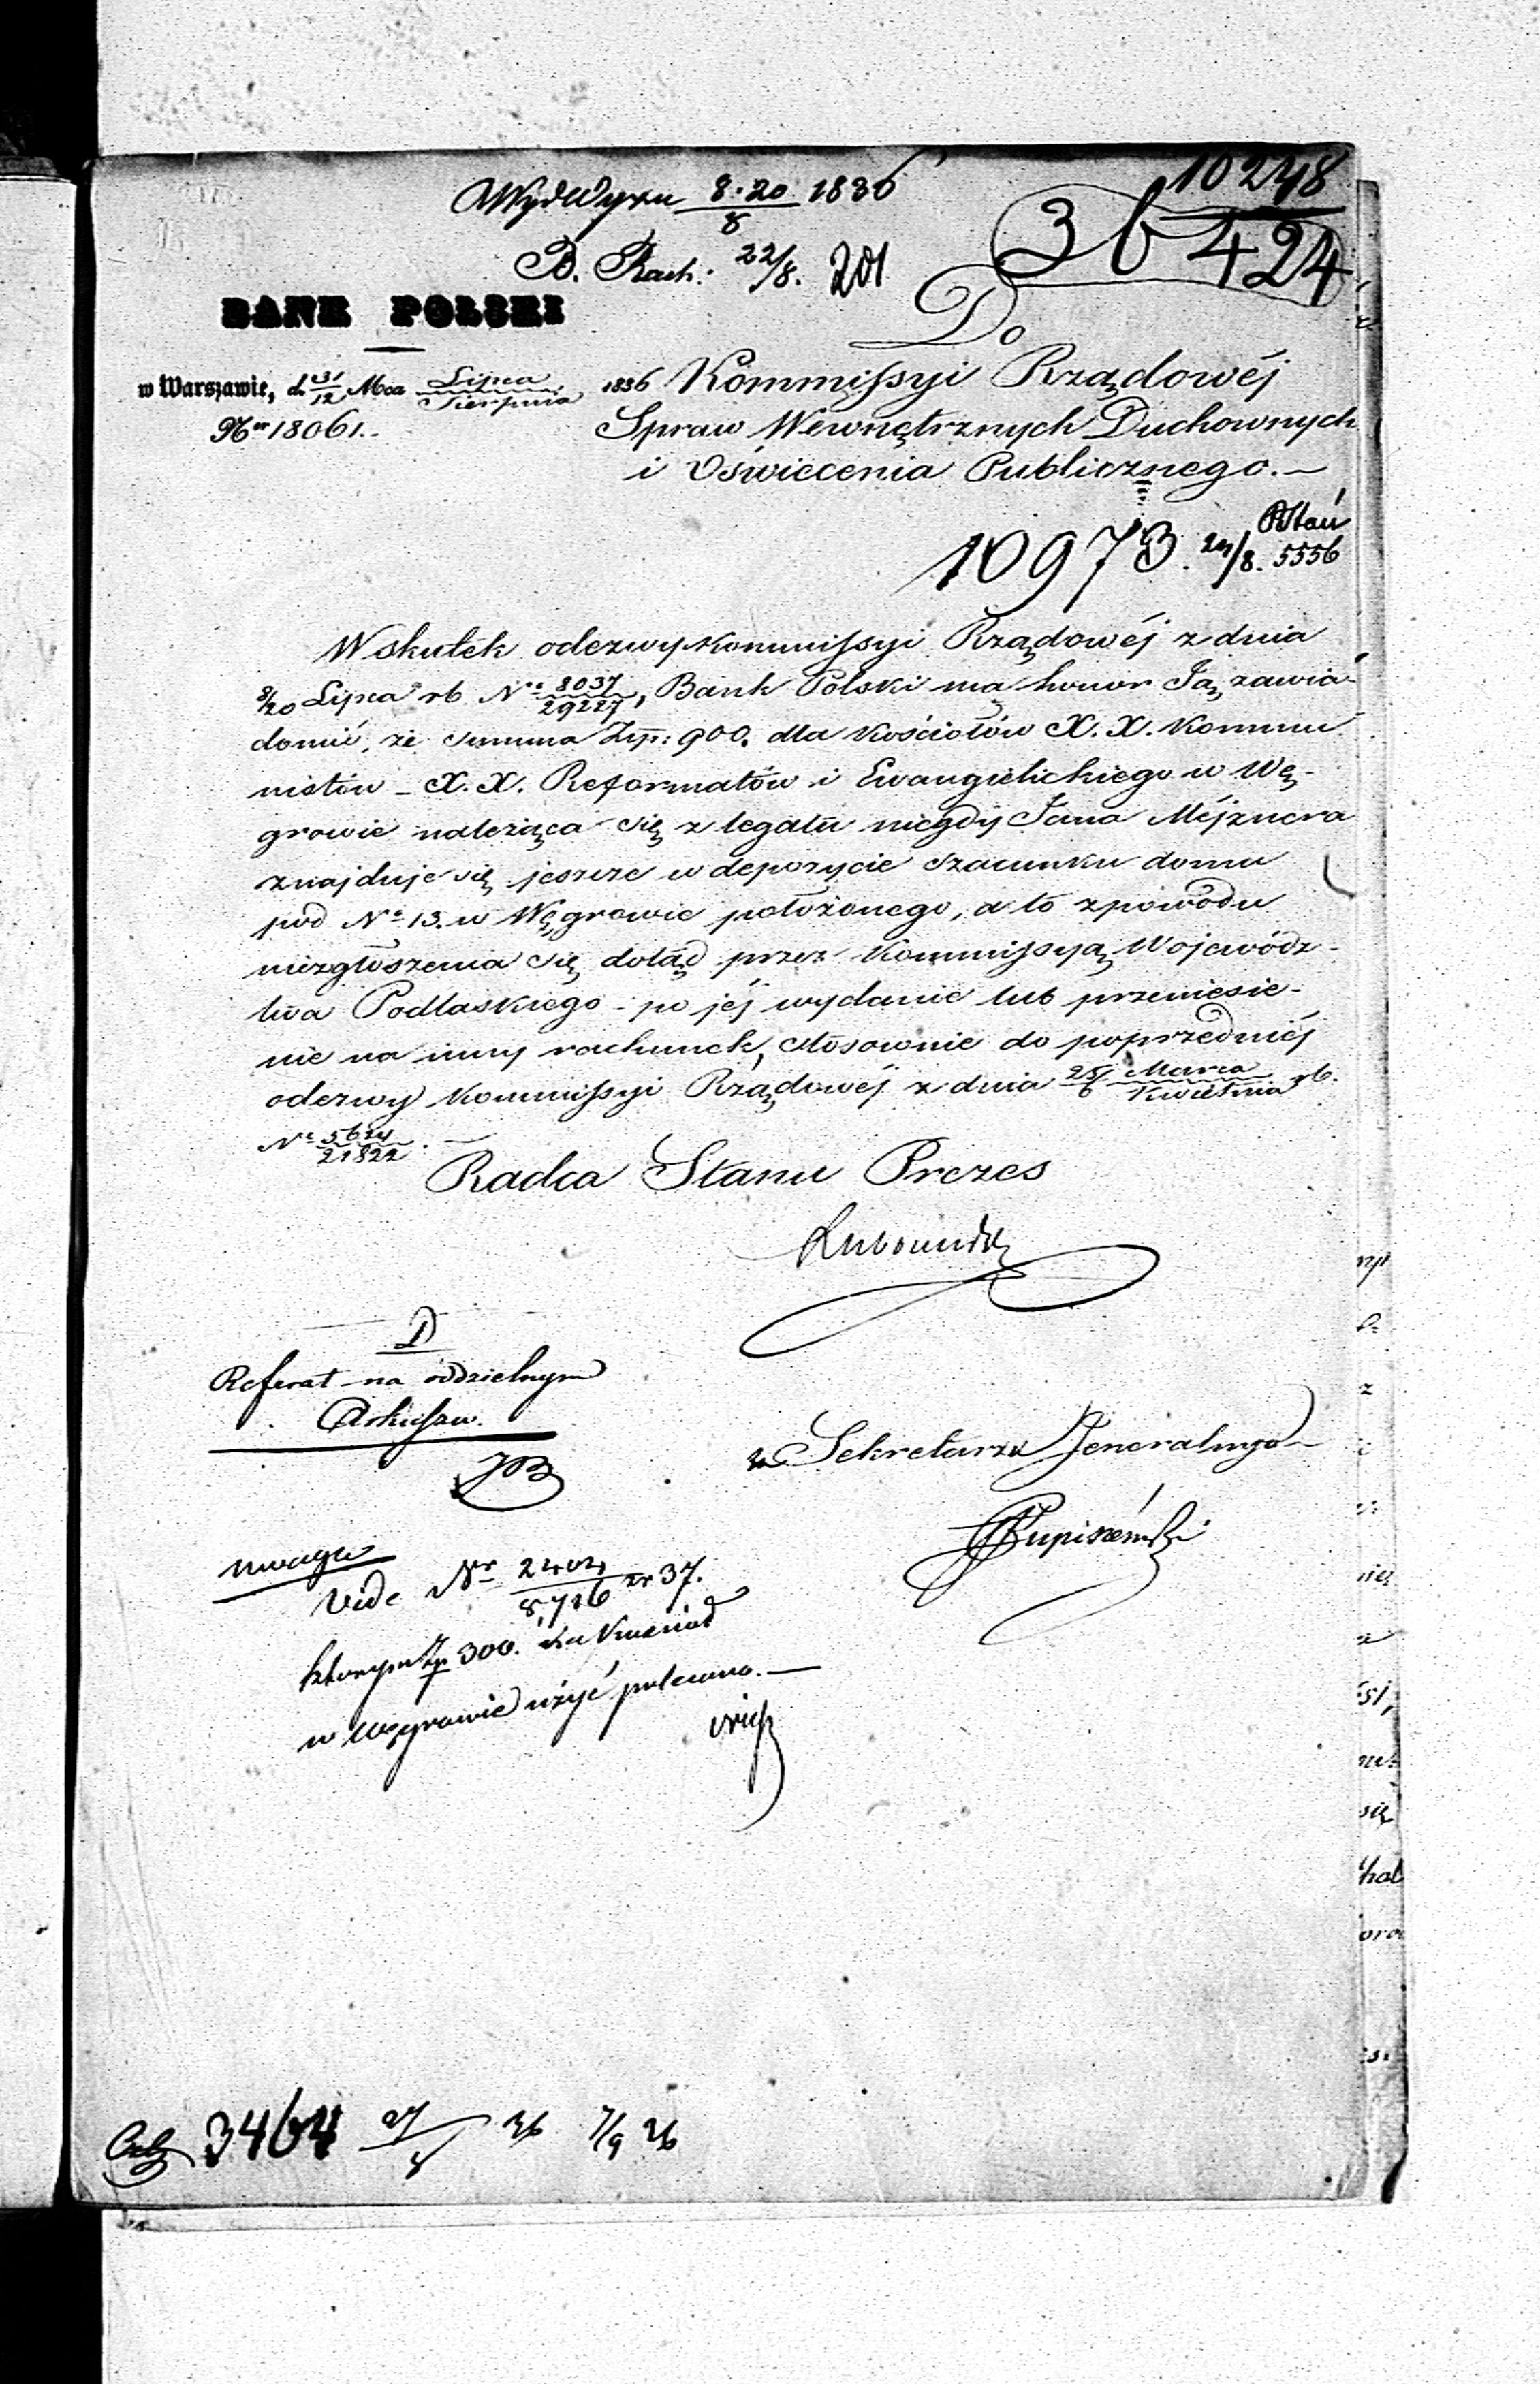 WydWyzn 8.20/8 1836
10248
36424
B. Rach: 22/8. 201
BANK POLSKI
Do
w Warszawie, d. 31/12 Mca Lipca/Sierpnia 1836
Kommissyi Rządowéj
Nr 18061.
Spraw Wewnętrznych Duchownych
i Oświecenia Publicznego.
10973. 24/8. 5556
Wskutek odezwy Kommissyi Rządowéj z dnia
8/20 Lipca rb No 8037/29227, Bank Polski ma honor Ją zawia-
domić, że summa Złp: 900. dla Kościołów X.X. Kommu
nistów – X.X. Reformatów i Ewangielickiego w Wę-
growie należąca się z legatu niegdy Jana Méjznera
znajduje się jeszcze w depozycie szacunku domu
pod No 13. w Węgrowie położonego, a to z powodu
niezgłoszenia się dotąd przez Kommissyą Wojewódz-
twa Podlaskiego – po jéj wydanie lub przeniesie-
nie na inny rachunek, stosownie do poprzedniéj
odezwy Kommissyi Rządowéj z dnia 25/6 Marca/Kwietnia rb.
No 5624/21822.
Radca Stanu Prezes
Lubowidzki
D
Referat na oddzielnym
Arkuszu.
JB
za Sekretarza Jeneralnego
uwaga
Vide Nr 2404/8,716 zr 37.
którym Zp 300. na Kościoł
w Węgrowie użyć polecono.
3464 27/8 36 7/9 36